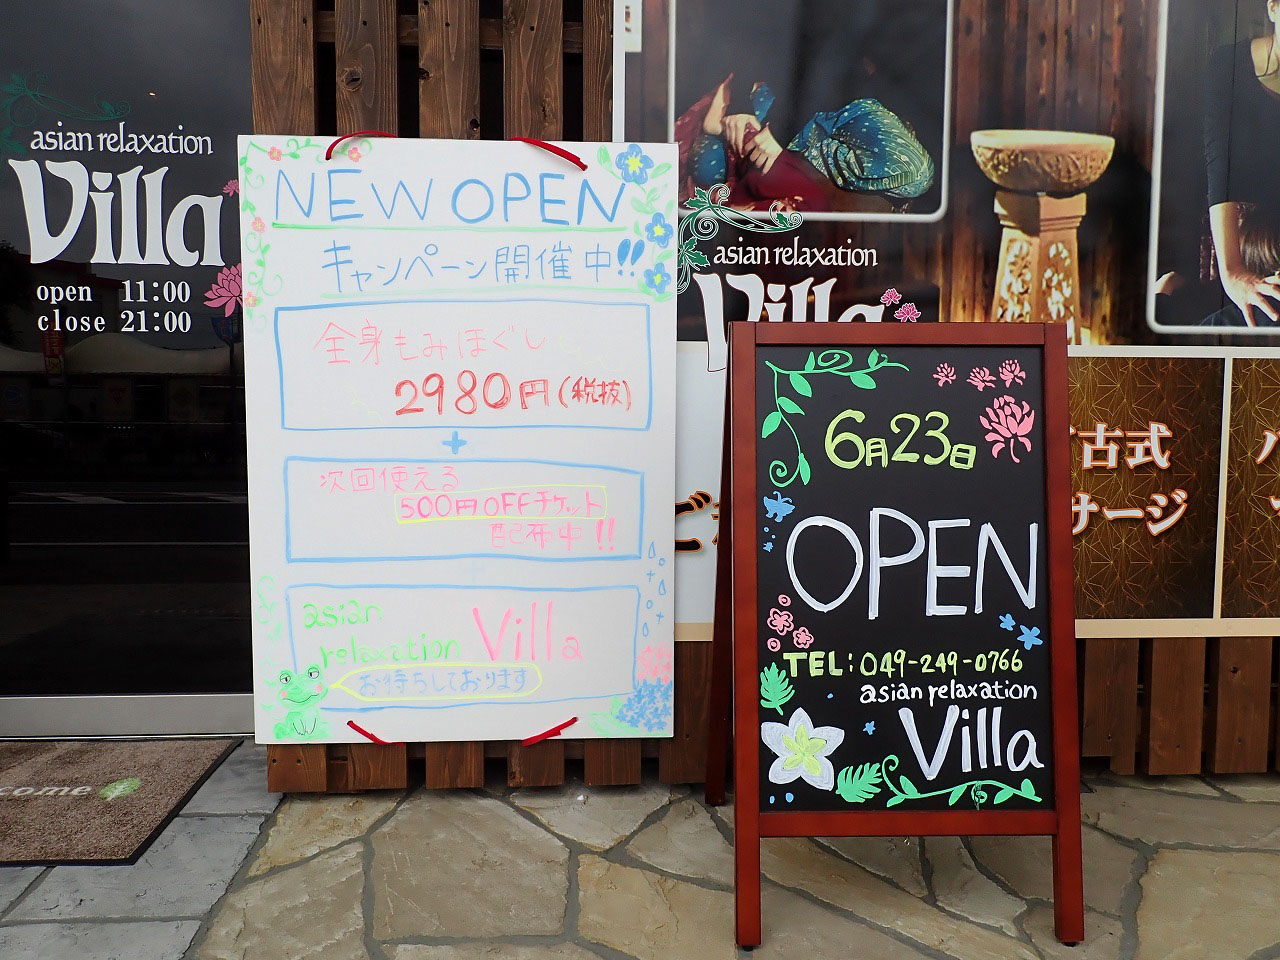 asian relaxation
Villa
open 11:00
close 21:00
NEW OPEN
キャンペーン開催中!!
全身もみほぐし
2980円(税抜)
+
次回使える
500円OFFチケット
配布中!!
asian
relaxation Villa
お待ちしております
asian relaxation
Villa
古式
サージ
6月23日
OPEN
TEL:049-249-0766
asian relaxation
Villa